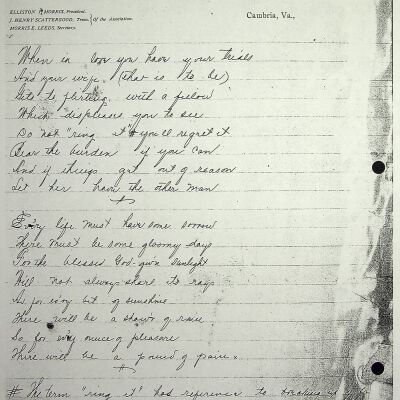 ELLISTON P. MORRIS, President.
J. HENRY SCATTERGOOD, Treas. of the Association.
MORRIS E. LEEDS, Secretary.
Cambria, Va.,
When in love you have your trials
And your wife (that is to be)
Gits to flirting with a fellow
Which displeases you to see
Do not "ring it" # you'll regret it
Bear the burden if you can
And if things get out of reason
Let her have the other man
Ev'ry life must have some sorrow
There must be some gloomy days
For the blessed God-given sunlight
Will not always share its rays
As for ev'ry bit of sunshine
There will be a shower of rain
So for ev'ry ounce of pleasure
There will be a pound of pain.
# The term "ring it" had reference to